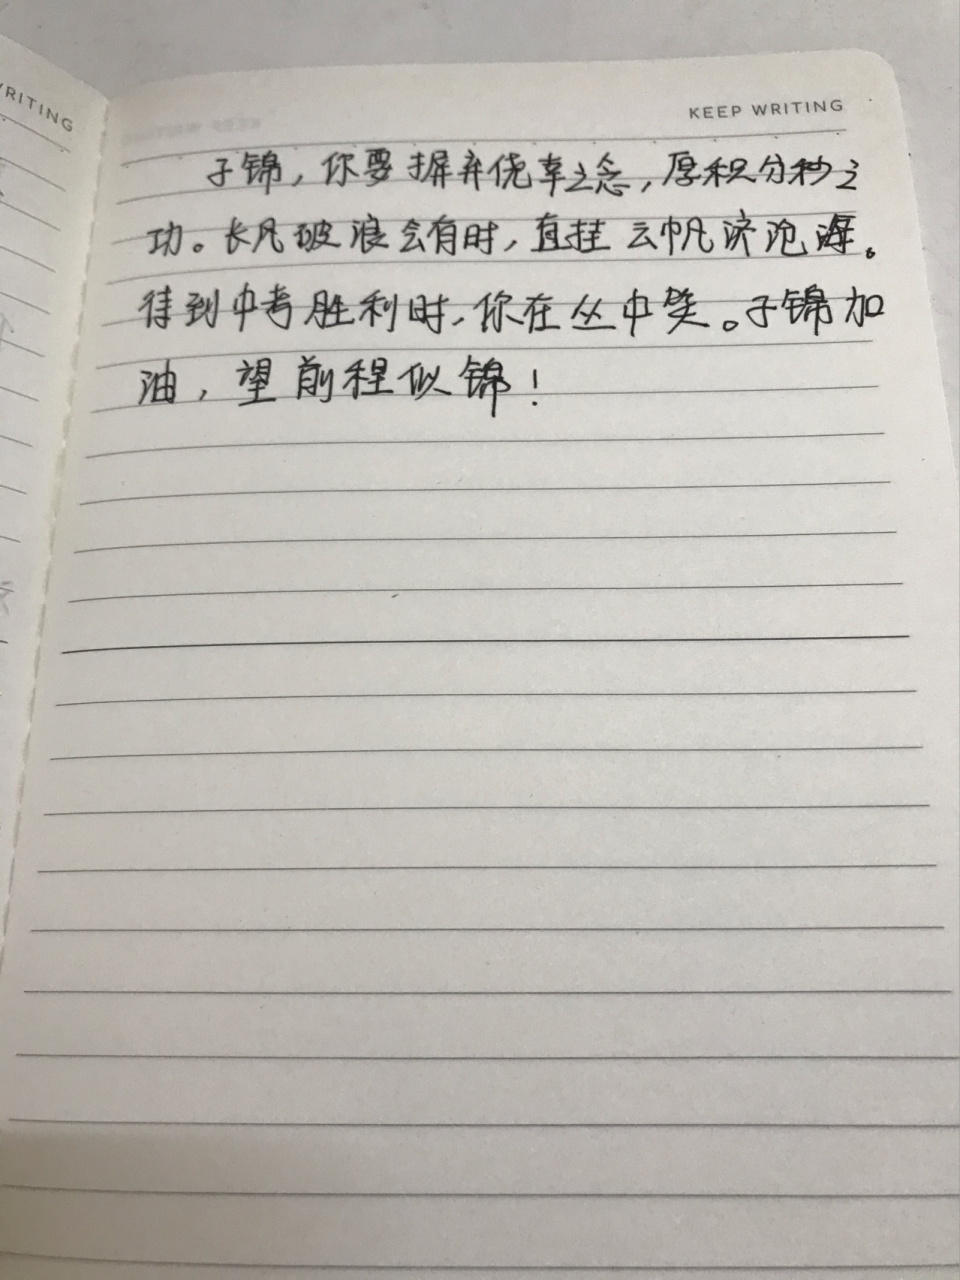 WRITING
KEEP WRITING
子锦，你要摒弃侥幸之念，厚积分秒之
功。长风破浪会有时，直挂云帆济沧海。
待到中考胜利时，你在丛中笑。子锦加
油，望前程似锦！